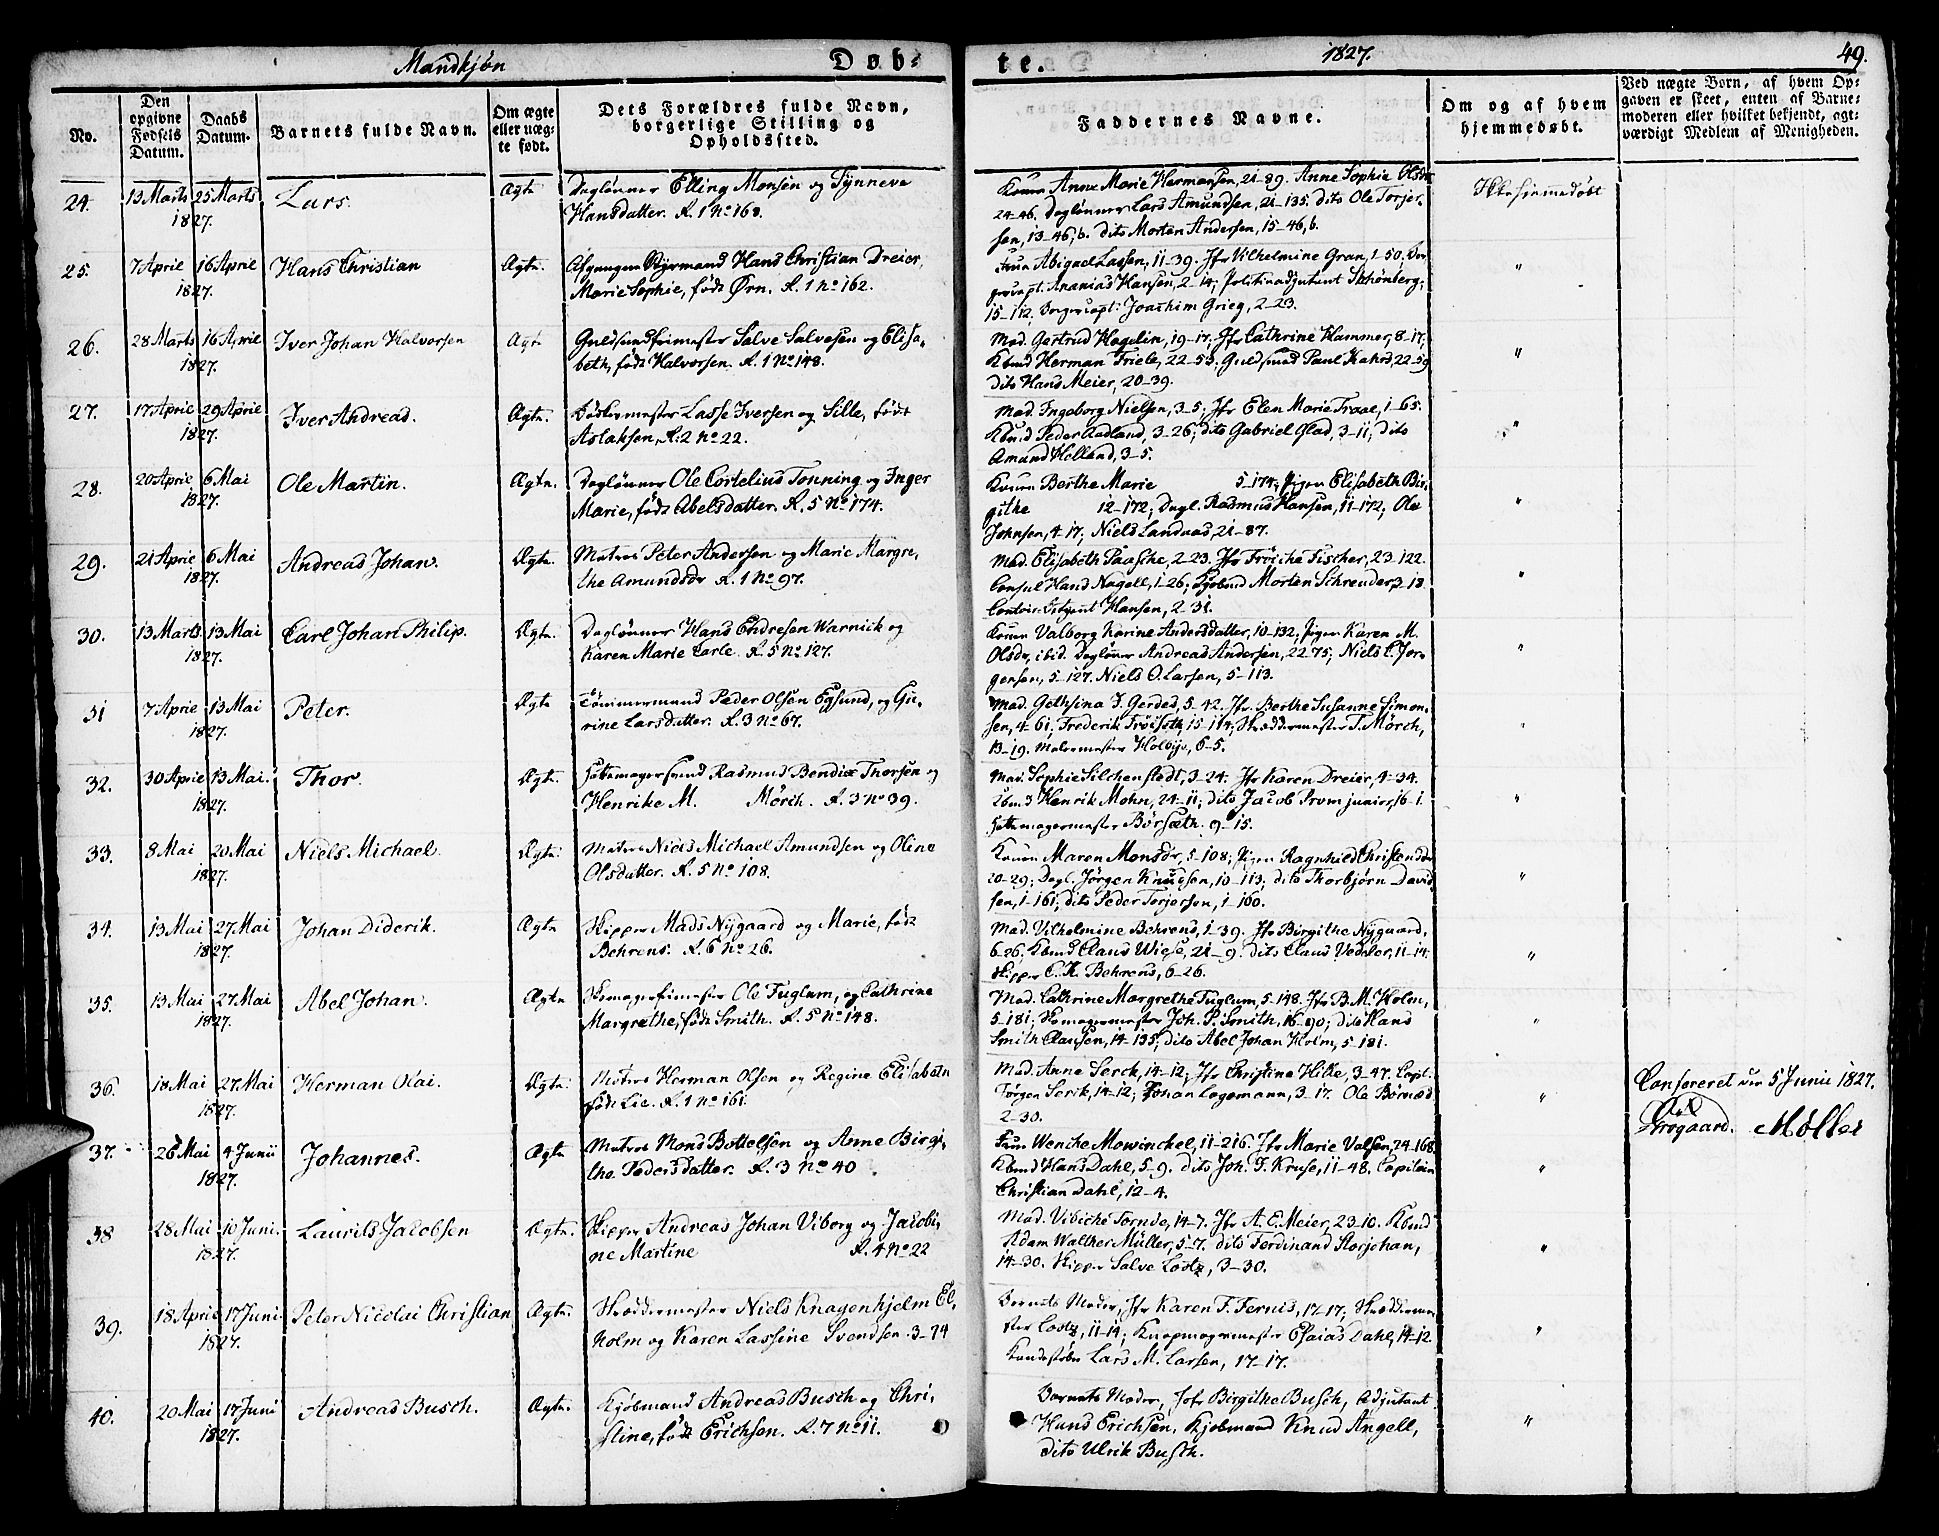 Mandkjøn
Døb-
te.
1827.
49.
No.
Den opgivne Fødsels Datum.
Daabs Datum.
Barnets fulde Navn.
Om ægte eller uægte født.
Dets Forældres fulde Navn, borgerlige Stilling og Opholdssted.
Faddernes Navne.
Om og af hvem hjemmedøbt.
Ved uægte Børn, af hvem Opgaven er skeet, enten af Barnemoderen eller hvilket bekjendt, agtværdigt Medlem af Menigheden.
24. 13 Marts 25 Marts Lars. Ægte Daglønner Elling Monsen og Synneve
1827. Hansdatter. R. 1 No 168.
Konen Anne Marie Hermansen, 21-89. Anne Sophie Olsdr
24-46. Daglønner Lars Amundsen, 21-135. dito Ole Torjer-
sen, 13-46, b. dito Morten Andersen, 15-46, b.
Ikke hjemmedøbt
25. 7 April 16 April Hans Christian Ægte. Afgangne Styrmand Hans Christian Dreier,
1827. Marie Sophie, født Ørn. R. 1 No 162.
Frue Abigael Lassen, 11-39. Jfr Vilhelmine Gran, 1-50; Bor-
gercapt. Ananias Hansen, 2-14; Politieadjutant Schönberg,
15-112, Borgercapt: Joachim Grieg, 2-23.
"
26. 28 Marts 16 April Iver Johan Halvorsen Ægte Guldsmedfrimester Salve Salvesen og Elisa-
1827. beth, født Halvorsen. R. 1 No 148.
Mad. Gertrud Hagelin, 19-17. Jfr Cathrine Hammer, 8-17,
Kbmd Herman Friele, 22-53; Guldsmed Paul Kahrs, 22-59
dito Hans Meier, 20-39.
"
27. 17 April 29 April Iver Andreas. Ægte. Bødkermester Lasse Iversen og Sille, født
1827. Aslaksen, R. 2 No 22.
Mad. Ingeborg Nielsen, 3-5; Jfr Elen Marie Traae, 1-65.
Kbmd Peder Aadland, 3-26; dito Gabriel Glad, 3-11; dito
Amund Helland, 3-5.
"
28. 20 April 6 Mai Ole Martin. Ægte. Daglønner Ole Cortelius Tonning og Inger
1827. Marie, født Abelsdatter. R. 5 No 174.
Konen Berthe Marie 5-174; Pigen Elisabeth Bir-
githe 12-172; Dagl. Rasmus Hansen, 11-172; Ole
Johnsen, 4-17; Niels Landaas, 21-87.
"
29. 21 April 6 Mai Andreas Johan. Ægte. Matros Peter Andersen og Marie Margre-
1827. the Amundsdr R. 1 No 97.
Mad. Elisabeth Paaske, 2-23. Jfr Fröiche Fischer, 23-122.
Consul Hans Nagell, 1-26; Kjøbmd Morten Schreuder, 3-18
Hansen, 2-31.
"
30. 13 Marts 13 Mai Carl Johan Philip. Ægte. Daglønner Hans Endresen Warnick og
1827. Karen Marie Carle. R. 5 No 127.
Konen Valborg Karine Andersdatter, 10-132; Pigen Karen M.
Olsdr, ibid. Dagløner Andreas Andersen, 22-75; Niels C. Jør-
gensen, 5-127. Niels O. Larsen, 5-113.
"
31 7 April 13 Mai Peter. Ægte Tömmermand Peder Olsen Egsund, og Gu-
1827. rine Larsdatter. R. 3 No 67.
Mad. Gethsina F. Gerdes, 5-42. Jfr. Berthe Susanne Simon-
sen, 4-61; Frederik Fröiseth, 15-114; Skreddermester T. Mørch,
13-19. Malermester Holbye, 6-5.
"
32. 30 April 13 Mai. Thor. Ægte. Hattemagersvend Rasmus Bendix Thorsen og
1827. Henrike M. Mörch. R. 3 No 39.
Mad. Sophie Silchenstedt, 3-24; Jfr Karen Dreier, 4-34.
Kbmd Henrik Mohn, 24-11; dito Jacob Prom junior, 16-1.
Hattemagermester Börsæth. 9-15.
"
33. 8 Mai 20 Mai Niels Michael. Ægte. Matros Niels Michael Amundsen og Oline
1827. Olsdatter. R. 5 No 108.
Konen Maren Monsdr, 5-108; Pigen Ragnhild Christensdr
20-29; Dagl. Jørgen Knudsen, 10-113; dito Thorbjørn David-
sen, 1-161; dito Peder Torjersen, 1-160.
"
34. 13 Mai 27. Mai Johan Diderik. Ægte Skipper Mads Nygaard og Marie, født
1827. Behrens. R. 6 No 26.
Mad. Vilhelmine Behrens, 1-39. Jfr Birgithe Nygaard,
6-26. Kbmd Claus Wiese, 21-9. dito Claus Vedeler, 11-14.
Skipper C. K. Behrens, 6-26.
"
35. 13 Mai 27. Mai Abel Johan. Ægte Skomagerfrimester Ole Fuglum, og Cathrine
1827. Margrethe, født Smith. R. 5 No 148.
Mad. Cathrine Margrethe Fuglum, 5-148. Jfr B. M. Holm,
5-181; Skomagermester Joh. P. Smith, 16-90; dito Hans
Smith Clausen, 14-135; dito Abel Johan Holm, 5-181.
"
36. 18 Mai 27. Mai Herman Olai. Ægte. Matros Herman Olsen og Regine Elisabeth
1827. født Lie. R. 1 No 161.
Mad. Anne Serck, 14-12; Jfr Christine Hilke, 3-47. Capt.
Jørgen Serik, 14-12; Johan Lagemann, 3-17. Ole Børnæs
2-30.
"
Confereret den 5 Junii 1827.
Krogaard. Møller
37. 26 Mai 4 Junii Johannes. Ægte Matros Mons Bottelsen og Anne Birgi-
1827. the Pedersdatter. R. 3 No 40.
Frue Wenche Mowinckel, 11-216. Jfr Marie Valsen, 24-168.
Kbmd Hans Dahl, 5-9. dito Joh. F. Kruse, 11-48, Capitain
Christian Dahl, 12-4.
"
38 28 Mai 10 Juni. Laurits Jacobsen Ægte. Skipper Andreas Johan Viborg og Jacobi-
1827. ne Martine R. 4 No 22
Mad. Vibiche Tornøe, 14-7. Jfr A. E. Meier, 23-10. Kbmd
Adam Walther Müller, 5-7. dito Ferdinand Storjohan,
14-30. Skipper Salve Lootz, 3-30.
"
39. 18 April 17 Juni Peter Nicolai Christian Ægte. Skreddermester Niels Knagenhjelm El-
1827. holm og Karen Lassine Svendsen. 3-74
Barnets Moder, Jfr Karen F. Fernis, 17-17; Skredderme-
ster Lootz, 11-14; Knapmagermester Esaias Dahl, 14-12.
Kandestøber Lars M. Larsen, 17-17.
"
40. 20 Mai 17 Juni Andreas Busch. Ægte. Kjöbmand Andreas Busch og Chri-
1827. stine, født Erichsen. R. 7 No 11.
Barnets Moder, Jfr Birgithe Busch, Adjutant
Hans Erichsen, Kjøbmand Knud Angell,
dito Ulrik Busch.
"